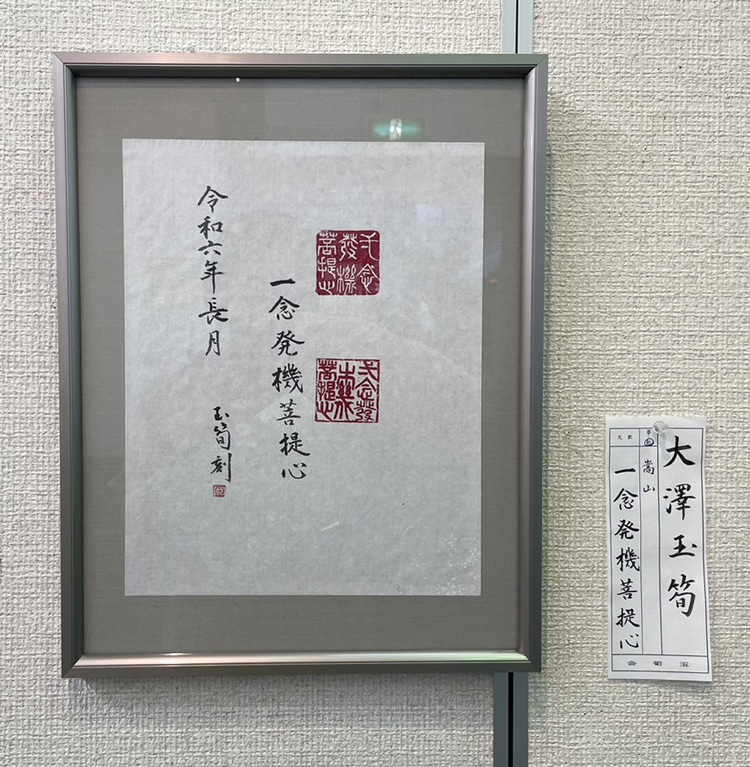 弌念
發機
菩提心
弌念發
機
菩提心
一念発機菩提心
令和六年長月
玉筍刻
大澤玉筍
嵩山
釈文
一念発機菩提心
玉筍会